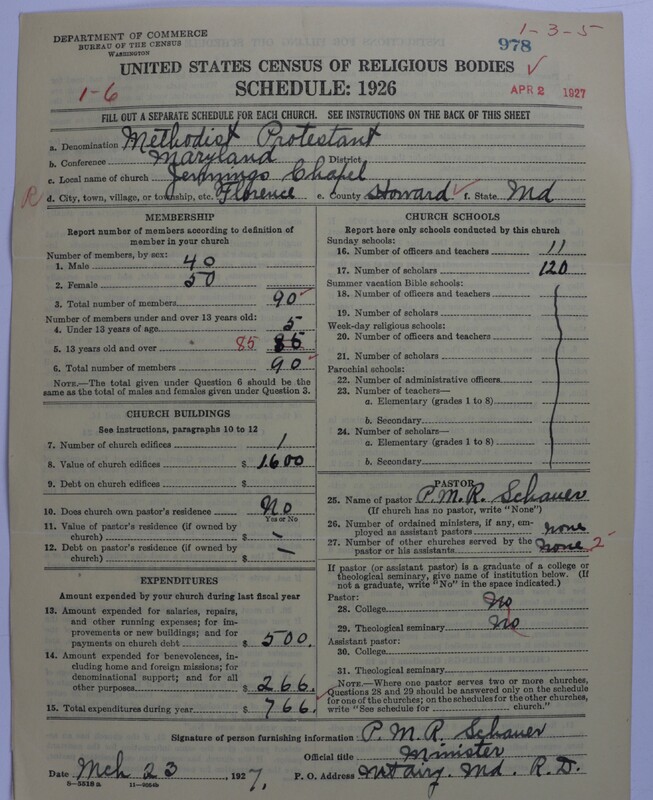 DEPARTMENT OF COMMERCE
BUREAU OF THE CENSUS
WASHINGTON
1-3-5
978
UNITED STATES CENSUS OF RELIGIOUS BODIES
SCHEDULE: 1926
1-6
APR 2 1927
FILL OUT A SEPARATE SCHEDULE FOR EACH CHURCH. SEE INSTRUCTIONS ON THE BACK OF THIS SHEET
a. Denomination Methodist Protestant
b. Conference Maryland District
c. Local name of church Jennings Chapel
R d. City, town, village, or township, etc. Florence e. County Howard f. State Md
MEMBERSHIP
Report number of members according to definition of
member in your church
Number of members, by sex:
1. Male 40
2. Female 50
3. Total number of members 90
Number of members under and over 13 years old:
4. Under 13 years of age 5
5. 13 years old and over 85 85
6. Total number of members 90
NOTE.—The total given under Question 6 should be
same as the total of males and females given under Question 3.
CHURCH BUILDINGS
See instructions, paragraphs 10 to 12
7. Number of church edifices 1
8. Value of church edifices $ 1600
9. Debt on church edifices $
10. Does church own pastor's residence No
Yes or No
11. Value of pastor's residence (if owned by
church) $ -
12. Debt on pastor's residence (if owned by
church) $ -
EXPENDITURES
Amount expended by your church during last fiscal year
13. Amount expended for salaries, repairs,
and other running expenses; for im-
provements or new buildings; and for
payments on church debt $ 500.
14. Amount expended for benevolences, in-
cluding home and foreign missions; for
denominational support; and for all
other purposes $ 266.
15. Total expenditures during year $ 766.
CHURCH SCHOOLS
Report here only schools conducted by this church
Sunday schools:
16. Number of officers and teachers 11
17. Number of scholars 120
Summer vacation Bible schools:
18. Number of officers and teachers
19. Number of scholars
Week-day religious schools:
20. Number of officers and teachers
21. Number of scholars
Parochial schools:
22. Number of administrative officers
23. Number of teachers—
a. Elementary (grades 1 to 8)
b. Secondary
24. Number of scholars—
a. Elementary (grades 1 to 8)
b. Secondary
PASTOR
25. Name of pastor P. M. R. Schauer
(If church has no pastor, write "None")
26. Number of ordained ministers, if any, em-
ployed as assistant pastors none
27. Number of other churches served by the
pastor or his assistants none 2
If pastor (or assistant pastor) is a graduate of a college or
theological seminary, give name of institution below. (If
not a graduate, write "No" in the space indicated.)
Pastor:
28. College No
29. Theological seminary No
Assistant pastor:
30. College
31. Theological seminary
NOTE.—Where one pastor serves two or more churches,
Questions 28 and 29 should be answered only on the schedule
for one of the churches; on the schedules for the other churches,
write "See schedule for church."
Signature of person furnishing information P. M. R. Schauer
Official title Minister
Date Mch 23, 1927. P. O. Address Mt Airy. Md. R. D.